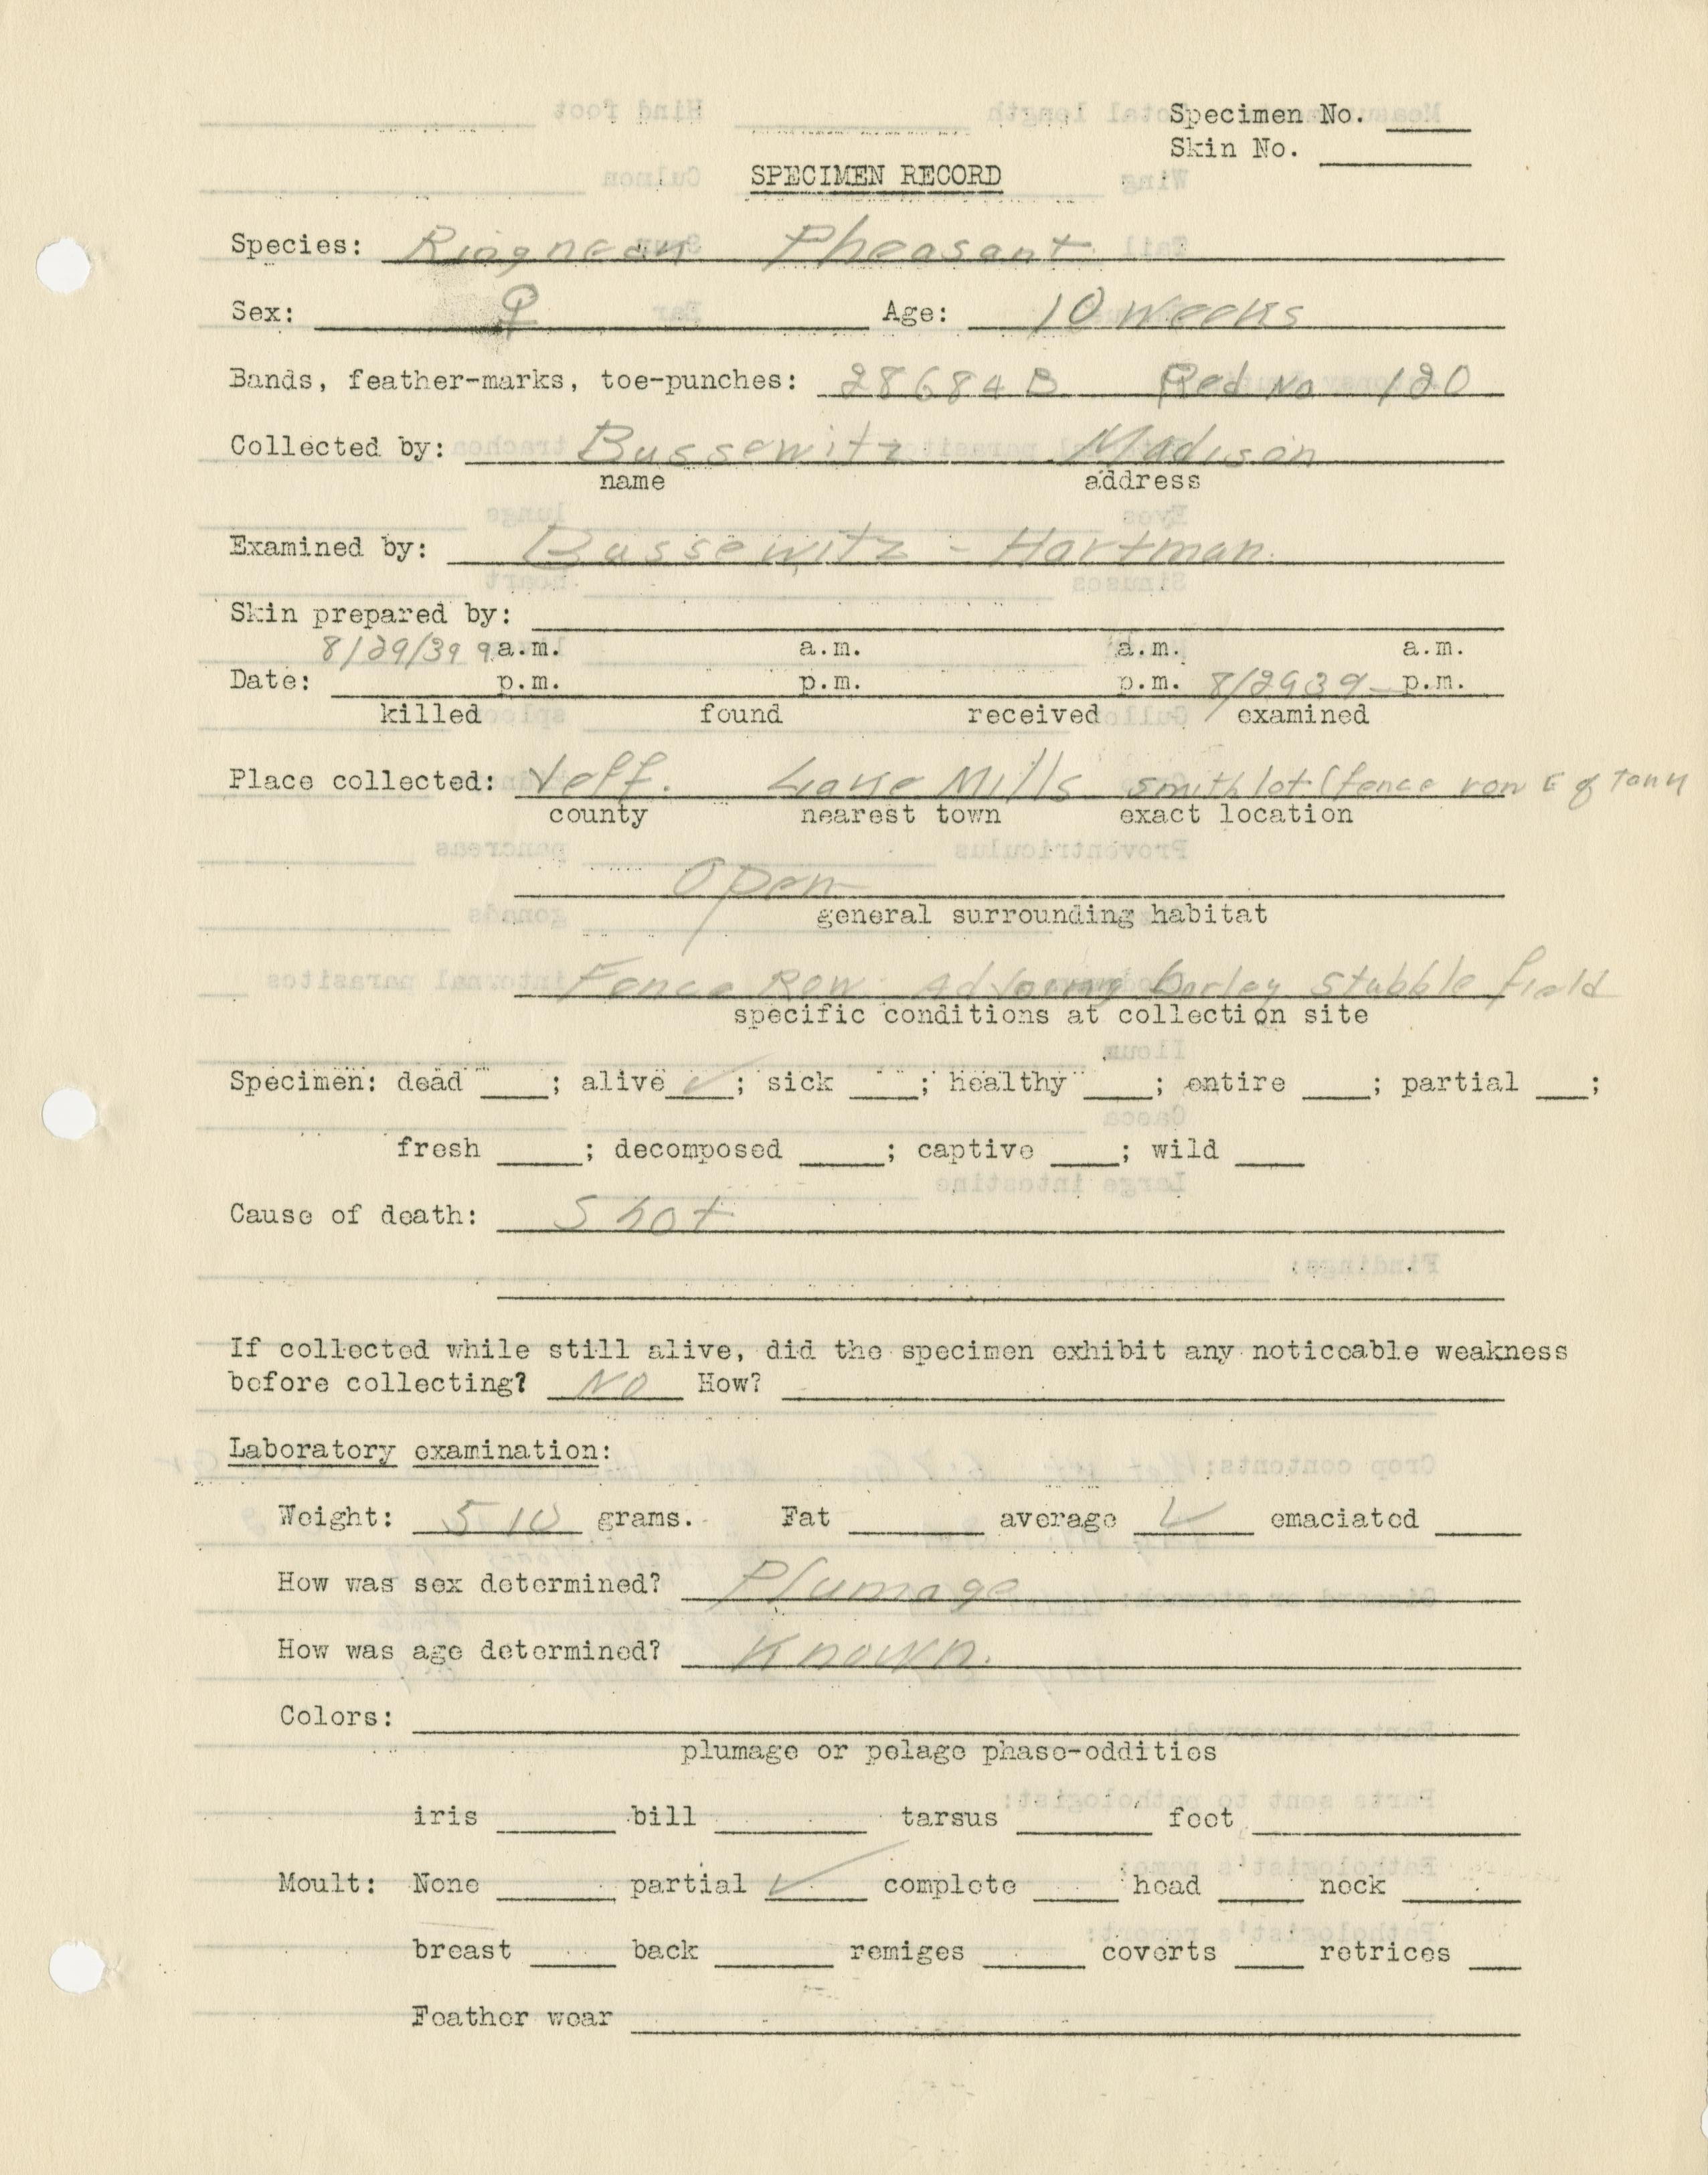 Specimen No. ____
Skin No. ____
SPECIMEN RECORD
Species: Ringneck Pheasant
Sex: ♀ Age: 10 weeks
Bands, feather-marks, toe-punches: 28684 B Red No 120
Collected by: Bussewitz Madison
name address
Examined by: Bussewitz - Hartman.
Skin prepared by: ____
8/29/39 9 a.m. a.m. a.m. a.m.
Date: ____ p.m. p.m. p.m. 8/29 39 p.m.
killed found received examined
Place collected: Jeff. Lake Mills smith lot (fence row E of Town
county nearest town exact location
Open
general surrounding habitat
Fence Row Adjoining barley stubble field
specific conditions at collection site
Specimen: dead ____; alive ✓; sick ____; healthy ____; entire ____; partial ____;
fresh ____; decomposed ____; captive ____; wild ____
Cause of death: Shot
If collected while still alive, did the specimen exhibit any noticeable weakness
before collecting? No How? ____
Laboratory examination:
Weight: 510 grams. Fat ____ average ✓ emaciated ____
How was sex determined? Plumage
How was age determined? Known.
Colors: ____
plumage or pelage phase-oddities
iris ____ bill ____ tarsus ____ foot ____
Moult: None ____ partial ✓ complete ____ head ____ neck ____
breast ____ back ____ remiges ____ coverts ____ retrices ____
Feather wear ____